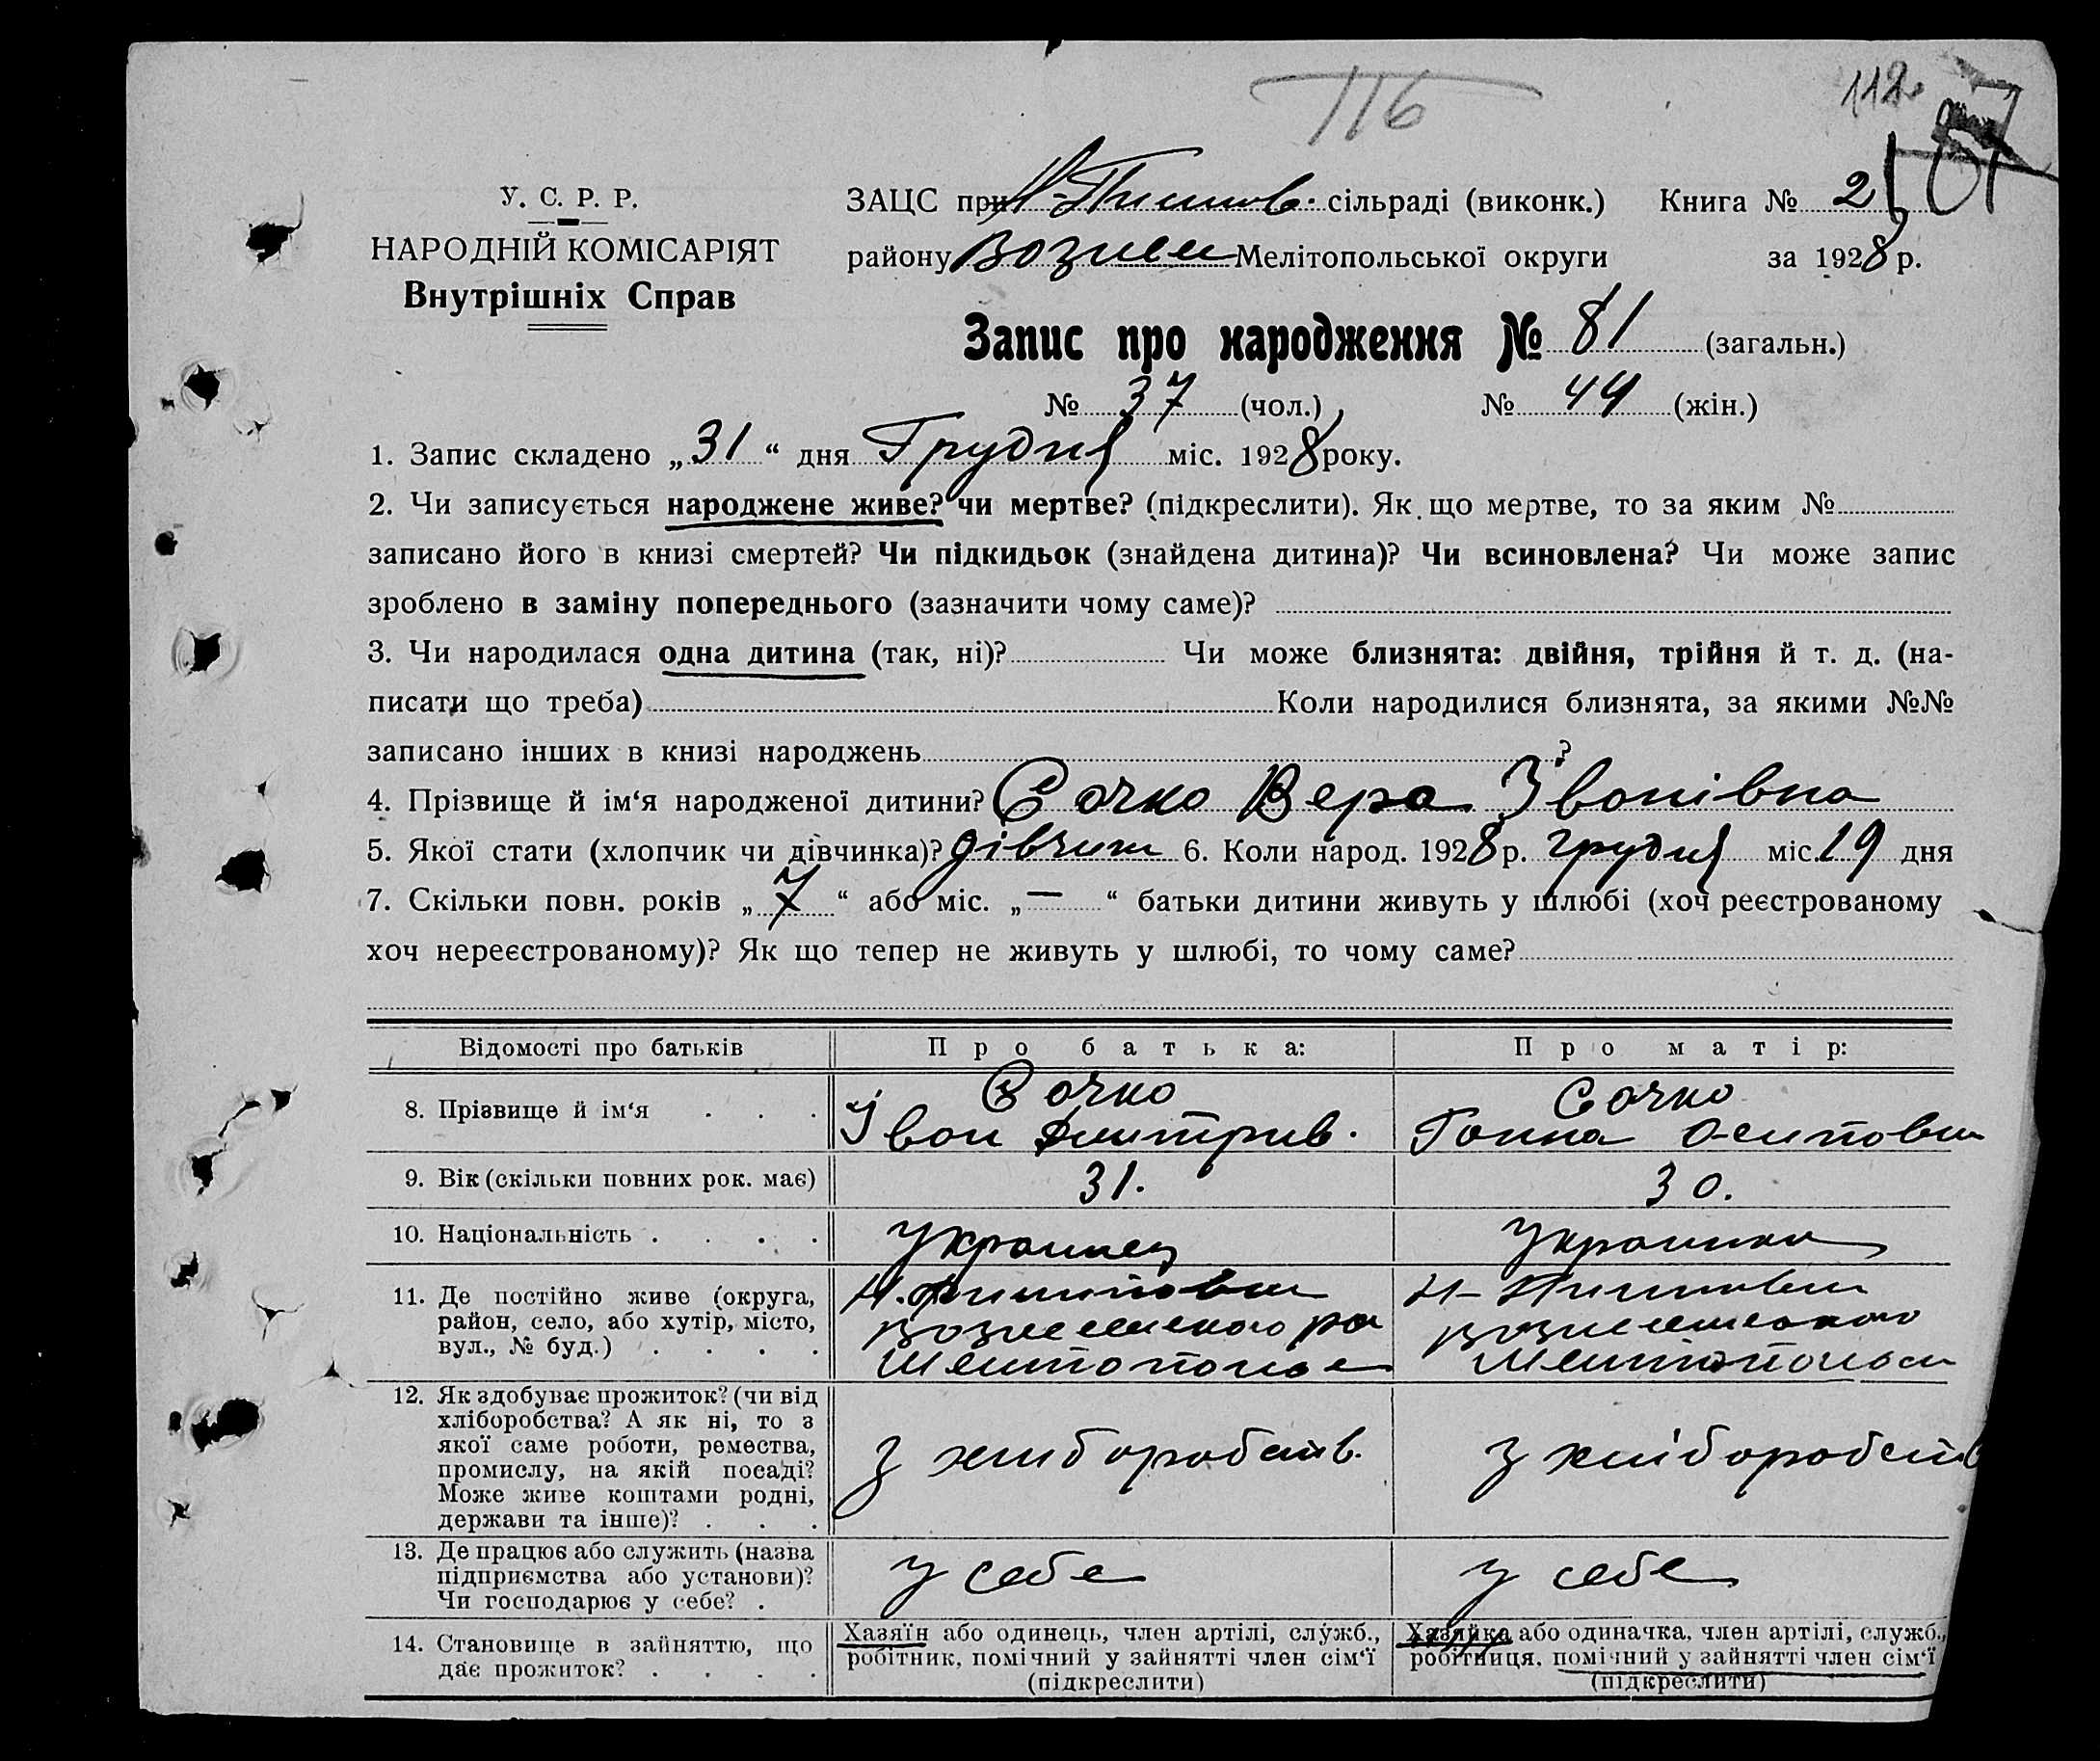 116
112
У. С. Р. Р.
НАРОДНІЙ КОМІСАРІЯТ
Внутрішніх Справ
ЗАЦС при сільраді (виконк.) Книга № 2
району Вознесен Мелітопольської округи за 1928 р.
Запис про народження № 81 (загальн.)
№ 37 (чол.) № 44 (жін.)
1. Запис складено „31“ дня Грудня міс. 1928 року.
2. Чи записується народжене живе? чи мертве? (підкреслити). Як що мертве, то за яким №
записано його в книзі смертей? Чи підкидьок (знайдена дитина)? Чи всиновлена? Чи може запис
зроблено в заміну попереднього (зазначити чому саме)?
3. Чи народилася одна дитина (так, ні)? Чи може близнята: двійня, трійня й т. д. (на-
писати що треба) Коли народилися близнята, за якими №№
записано інших в книзі народжень ?
4. Прізвище й ім‘я народженої дитини? Сочко Вера Iванівна
5. Якої стати (хлопчик чи дівчинка)? дівчин 6. Коли народ. 1928 р. грудня міс. 19 дня
7. Скільки повн. років „7“ або міс. „—“ батьки дитини живуть у шлюбі (хоч реєстрованому
хоч нереєстрованому)? Як що тепер не живуть у шлюбі, то чому саме?
Відомості про батьків Про батька: Про матір:
8. Прізвище й ім‘я Сочко Іван Дмитрив. Сочко Ганна Осиповн
9. Вік (скільки повних рок. має) 31. 30.
10. Національність Украинец Украинка
11. Де постійно живе (округа,
район, село, або хутір, місто,
вул., № буд.)
12. Як здобуває прожиток? (чи від
хліборобства? А як ні, то з
якої саме роботи, ремества,
промислу, на якій посаді?
Може живе коштами родні,
держави та інше)?
з хлиборобств. з хліборобств
13. Де працює або служить (назва
підприємства або установи)?
Чи господарює у себе?
у себе у себе
14. Становище в зайняттю, що
дає прожиток?
Хазяїн або одинець, член артілі, служб.,
робітник, помічний у зайнятті член сім‘ї
(підкреслити)
Хазяйка або одиначка, член артілі, служб.,
робітниця, помічний у зайнятті член сім‘ї
(підкреслити)